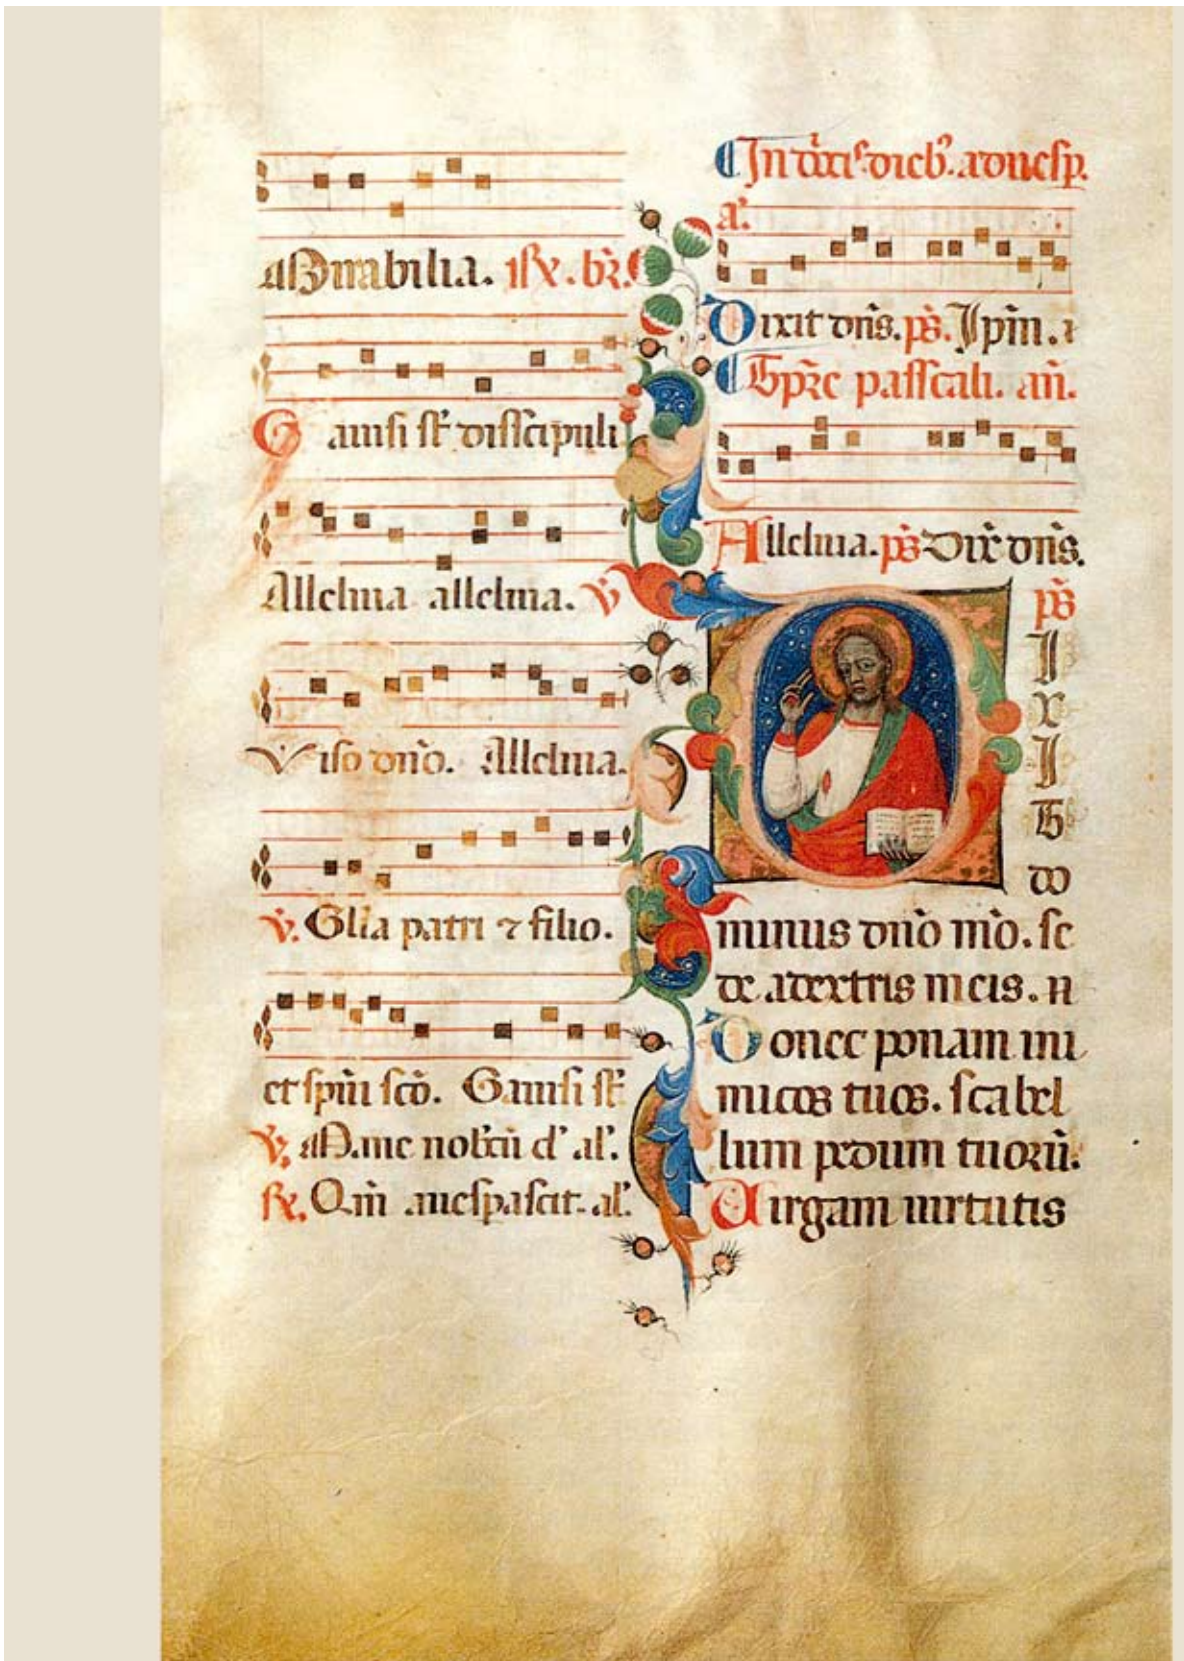 Mirabilia. ℟. br̄.
Gauisi st̄ discipuli
Alleluia alleluia. ℣
Viso dn̄o. Alleluia.
℣. Glīa patri ⁊ filio.
et spūi scō. Gauisi st̄
℣. Mane nobcū d' al'.
℟. Qm̄ aduespascit. al'.
dieb'. aduesp.
a'.
Dixit dn̄s. ps̄. Ipm̄.
Tp̄re passcali. an̄.
Alleluia. ps̄ Dix̄ dn̄s.
ps̄
D
I
X
I
T
do
minus dn̄o mō. se
de adextris meis.
Donec ponam ini
micos tuos. scabel
lum pedum tuoꝝū.
Uirgam uirtutis